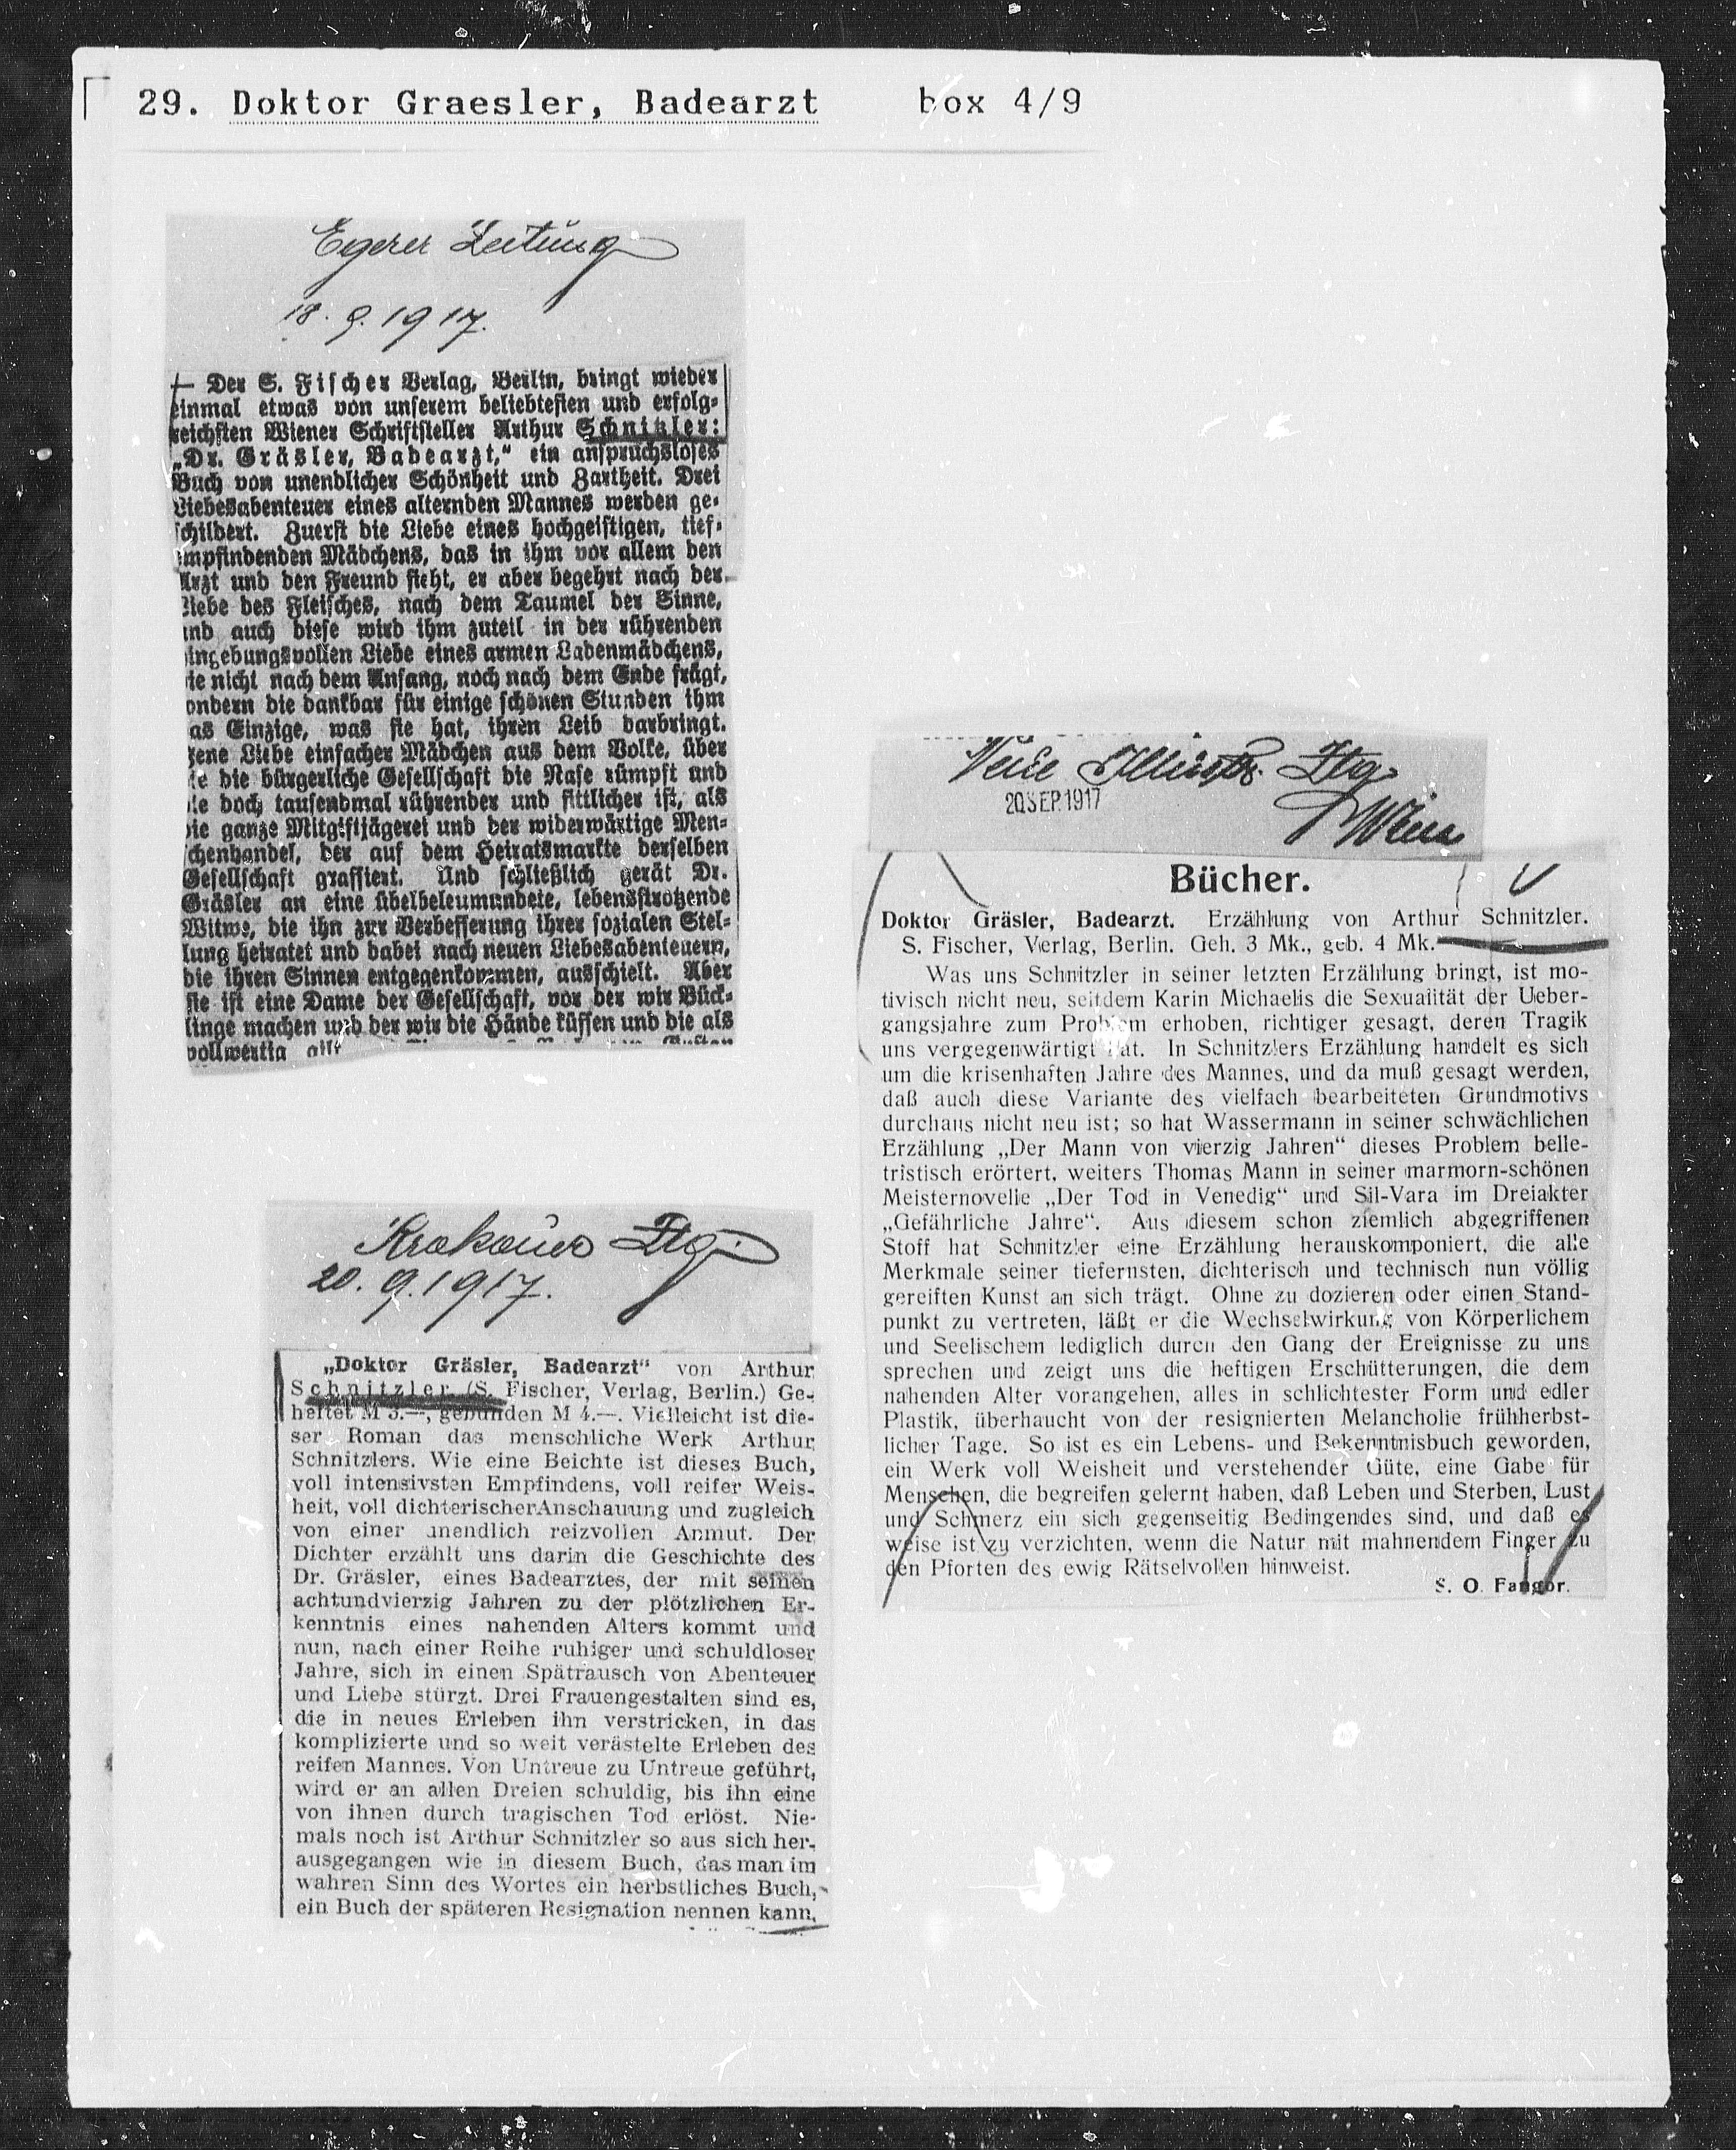 29. Doktor Graesler, Badearzt box 4/9
Egerer Zeitung
18. 9. 1917.
— Der S. Fischer Verlag, Berlin, bringt wieder
einmal etwas von unserem beliebtesten und erfolg-
reichsten Wiener Schriftsteller Arthur Schnitzler:
„Dr. Gräsler, Badearzt,“ ein anspruchsloses
Buch von unendlicher Schönheit und Zartheit. Drei
Liebesabenteuer eines alternden Mannes werden ge-
schildert. Zuerst die Liebe eines hochgeistigen, tief-
empfindenden Mädchens, das in ihm vor allem den
Arzt und den Freund sieht, er aber begehrt nach der
Liebe des Fleisches, nach dem Taumel der Sinne,
und auch diese wird ihm zuteil in der rührenden
ingebungsvollen Liebe eines armen Ladenmädchens,
ie nicht nach dem Anfang, noch nach dem Ende frägt,
ondern die dankbar für einige schönen Stunden ihm
as Einzige, was sie hat, ihren Leib darbringt.
jene Liebe einfacher Mädchen aus dem Volke, über
ie die bürgerliche Gesellschaft die Nase rümpft und
ie doch tausendmal rührender und sittlicher ist, als
die ganze Mitgiftjägerei und der widerwärtige Men-
schenhandel, der auf dem Heiratsmarkte derselben
Gesellschaft grassiert. Und schließlich gerät Dr.
Gräsler an eine übelbeleumundete, lebensstrotzende
Witwe, die ihn zur Verbesserung ihrer sozialen Stel-
lung heiratet und dabei nach neuen Liebesabenteuern,
die ihren Sinnen entgegenkommen, ausschielt. Aber
sie ist eine Dame der Gesellschaft, vor der wir Bück-
linge machen und der wir die Hände küssen und die als
vollwertig gilt
Krakauer Ztg.
20. 9. 1917.
„Doktor Gräsler, Badearzt“ von Arthur
Schnitzler (S. Fischer, Verlag, Berlin.) Ge-
heftet M 3.—, gebunden M 4.—. Vielleicht ist die-
ser Roman das menschliche Werk Arthur
Schnitzlers. Wie eine Beichte ist dieses Buch,
voll intensivsten Empfindens, voll reifer Weis-
heit, voll dichterischer Anschauung und zugleich
von einer unendlich reizvollen Anmut. Der
Dichter erzählt uns darin die Geschichte des
Dr. Gräsler, eines Badearztes, der mit seinen
achtundvierzig Jahren zu der plötzlichen Er-
kenntnis eines nahenden Alters kommt und
nun, nach einer Reihe ruhiger und schuldloser
Jahre, sich in einen Spätrausch von Abenteuer
und Liebe stürzt. Drei Frauengestalten sind es,
die in neues Erleben ihn verstricken, in das
komplizierte und so weit verästelte Erleben des
reifen Mannes. Von Untreue zu Untreue geführt,
wird er an allen Dreien schuldig, bis ihn eine
von ihnen durch tragischen Tod erlöst. Nie-
mals noch ist Arthur Schnitzler so aus sich her-
ausgegangen wie in diesem Buch, das man im
wahren Sinn des Wortes ein herbstliches Buch,
ein Buch der späteren Resignation nennen kann.
Neue Illustr. Ztg.
20 SEP. 1917
Wien
Bücher.
Doktor Gräsler, Badearzt. Erzählung von Arthur Schnitzler.
S. Fischer, Verlag, Berlin. Geh. 3 Mk., geb. 4 Mk.
Was uns Schnitzler in seiner letzten Erzählung bringt, ist mo-
tivisch nicht neu, seitdem Karin Michaelis die Sexualität der Ueber-
gangsjahre zum Problem erhoben, richtiger gesagt, deren Tragik
uns vergegenwärtigt hat. In Schnitzlers Erzählung handelt es sich
um die krisenhaften Jahre des Mannes, und da muß gesagt werden,
daß auch diese Variante des vielfach bearbeiteten Grundmotivs
durchaus nicht neu ist; so hat Wassermann in seiner schwächlichen
Erzählung „Der Mann von vierzig Jahren“ dieses Problem belle-
tristisch erörtert, weiters Thomas Mann in seiner marmorn-schönen
Meisternovelle „Der Tod in Venedig“ und Sil-Vara im Dreiakter
„Gefährliche Jahre“. Aus diesem schon ziemlich abgegriffenen
Stoff hat Schnitzler eine Erzählung herauskomponiert, die alle
Merkmale seiner tiefernsten, dichterisch und technisch nun völlig
gereiften Kunst an sich trägt. Ohne zu dozieren oder einen Stand-
punkt zu vertreten, läßt er die Wechselwirkung von Körperlichem
und Seelischem lediglich durch den Gang der Ereignisse zu uns
sprechen und zeigt uns die heftigen Erschütterungen, die dem
nahenden Alter vorangehen, alles in schlichtester Form und edler
Plastik, überhaucht von der resignierten Melancholie frühherbst-
licher Tage. So ist es ein Lebens- und Bekenntnisbuch geworden,
ein Werk voll Weisheit und verstehender Güte, eine Gabe für
Menschen, die begreifen gelernt haben, daß Leben und Sterben, Lust
und Schmerz ein sich gegenseitig Bedingendes sind, und daß es
weise ist zu verzichten, wenn die Natur mit mahnendem Finger zu
den Pforten des ewig Rätselvollen hinweist.
S. O. Fangor.